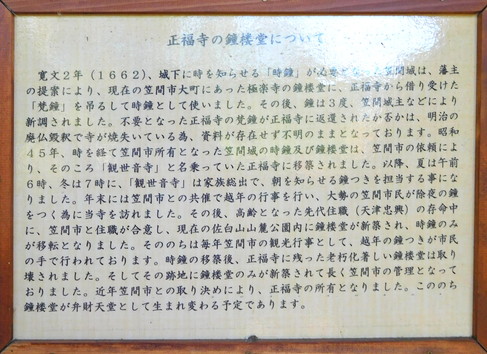 正福寺の鐘楼堂について
寛文2年（1662）、城下に時を知らせる「時鐘」が必要となった笠間城は、藩主
の提案により、現在の笠間市大町にあった極楽寺の鐘楼堂に、正福寺から借り受けた
「梵鐘」を吊るして時鐘として使いました。その後、鐘は3度、笠間城主などにより
新調されました。不要となった正福寺の梵鐘が正福寺に返還されたか否かは、明治の
廃仏毀釈で寺が焼失している為、資料が存在せず不明のままとなっております。昭和
45年、時を経て笠間市所有となった笠間城の時鐘及び鐘楼堂は、笠間市の依頼によ
り、そのころ「観世音寺」と名乗っていた正福寺に移築されました。以降、夏は午前
6時、冬は7時に、「観世音寺」は家族総出で、朝を知らせる鐘つきを担当する事にな
りました。年末には笠間市との共催で越年の行事を行い、大勢の笠間市民が除夜の鐘
をつく為に当寺を訪れました。その後、高齢となった先代住職（天津忠興）の存命中
に、笠間市と住職が合意し、現在の佐白山山麓公園内に鐘楼堂が新築され、時鐘のみ
が移転となりました。そののちは毎年笠間市の観光行事として、越年の鐘つきが市民
の手で行われております。時鐘の移築後、正福寺に残った老朽化著しい鐘楼堂は取り
壊されました。そしてその跡地に鐘楼堂のみが新築されて長く笠間市の管理となって
おりました。近年笠間市との取り決めにより、正福寺の所有となりました。こののち
鐘楼堂が弁財天堂として生まれ変わる予定であります。